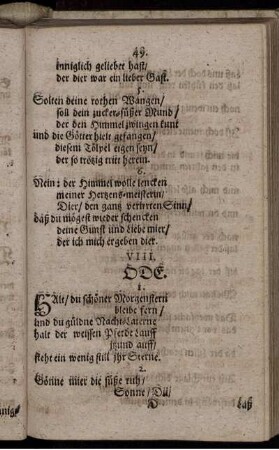 49.
inniglich geliebet hast/
der dier war ein lieber Gast.
5.
Solten deine rothen Wangen/
soll dein zucker-süßer Mund/
der den Himmel zwingen kunt
und die Götter hielt gefangen/
diesem Tölpel eigen seyn/
der so trötzig mit herein.
6.
Nein: der Himmel wolle lencken
meiner Hertzens-meisterin/
Dier/ den gantz verirrten Sinn/
daß du mögest wieder schencken
deine Gunst und Liebe mier/
der ich mich ergeben dier.
VIII.
ODE.
1.
HAlt/ du schöner Morgenstern
bleibe fern/
und du güldne Nacht-Laterne
halt der weissen Pferde Lauff
itzund auff/
steht ein wenig still ihr Sterne.
2.
Gönne mier die süße ruh/
Sonne/ Du/
D
Laß